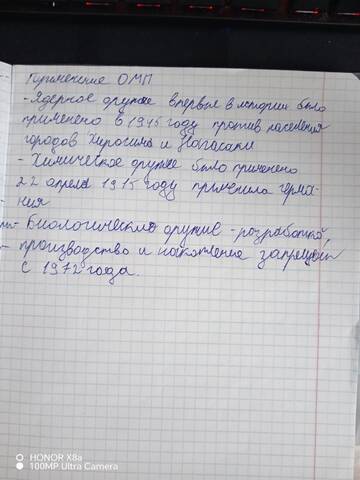 Применение ОМП
- Ядерное оружие впервые в истории было
применено в 1945 году против населения
городов Хиросима и Нагасаки
- Химическое оружие было применено
22 апреля 1915 году применила герма-
ния
- Биологическое оружие - разработка,
производство и накопление запрещён
с 1972 года.
HONOR X8a
100MP Ultra Camera